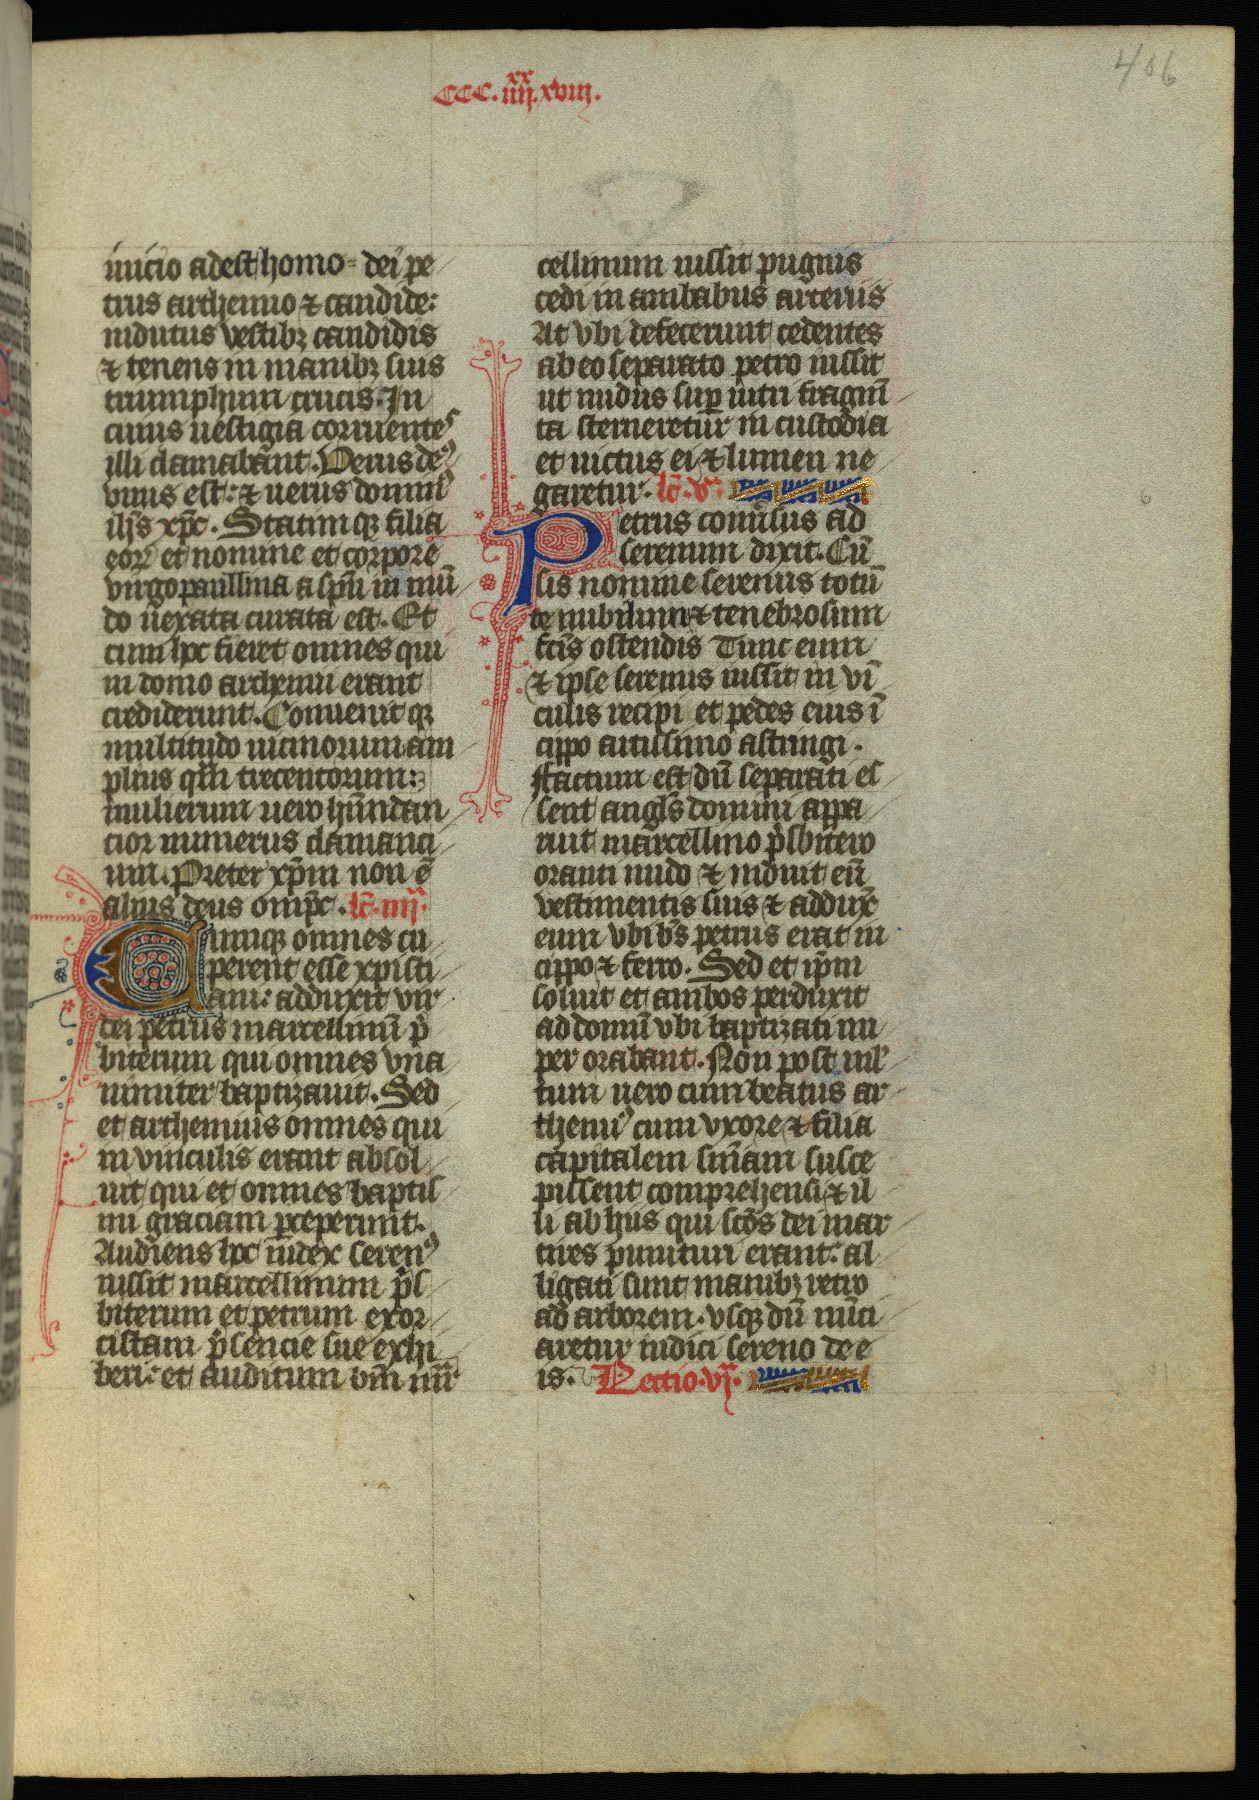 CCC.iiij.xx xviij.
406
inicio adest homo dei pe
trus arthemio ⁊ candide:
indutus vestibꝫ candidis
⁊ tenens in manibꝫ suis
triumphum crucis. In
cuius uestigia corruentes
illi clamabant. Verus deꝰ
vnus est: ⁊ uerus dominꝰ
ihs̄ xp̄c. Statimqꝫ filia
eoꝝ et nomine et corpore
virgo paulina a spū in mū
do uexata curata est. Et
cum hoc fieret omnes qui
in domo arthemii erant
crediderunt. Conuenitqꝫ
multitudo uicinorum am
plius qm̄ trecentorum:
mulierum uero habundan
cior numerus clamanci
um. Preter xp̄m non ē
alius deus omp̄c. lc̄. iiij.
Cumqꝫ omnes cu
perent esse xpisti
ani: adduxit vir
dei petrus marcellinū p̄
biterum qui omnes vna
nimiter baptizauit. Sed
et arthemius omnes qui
in vinculis erant absol
uit qui et omnes baptis
mi graciam ꝑceperunt.
Audiens hoc iudex serenꝰ
iussit marcellinum p̄s
biterum et petrum exor
cistam p̄sencie sue exhi
beri: et auditum vm̄
cellinum iussit pugnis
cedi in ambabus arteriis
At vbi defecerunt cedentes
ab eo separato petro iussit
ut nudus suꝑ uitri fragm̄
ta sterneretur in custodia
et uictus ei ⁊ lumen ne
garetur. lc̄. v.
Petrus conuersus ad
serenum dixit. Cū
sis nomine serenus totū
te nubilum ⁊ tenebrosum
fc̄is ostendis Tunc eum
⁊ ipse serenus iussit in vī
culis recipi et pedes eius ī
cippo artissimo astringi.
ffactum est dū separati es
sent angl̄s domini appa
ruit marcellino p̄sbitero
oranti nudo ⁊ induit eū
vestimentis suis ⁊ addux̄
eum vbi bs̄ petrus erat in
cippo ⁊ ferro. Sed et ip̄m
soluit et ambos perduxit
ad domū vbi baptizati nu
per orabant. Non post mł
tum uero cum beatus ar
themiꝰ cum vxore ⁊ filia
capitalem sn̄iam susce
pissent comprehensi ⁊ il
li ab hiis qui scōs dei mar
tires punituri erant: al
ligati sunt manibꝫ retro
ad arborem. vsqꝫ dū nūci
aretur iudici sereno de e
is. Lectio. vj.